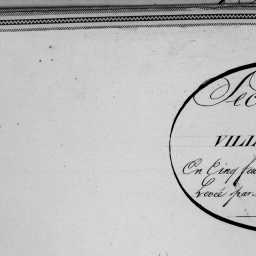 Sec
VILL
En Cinq feu
Levée par